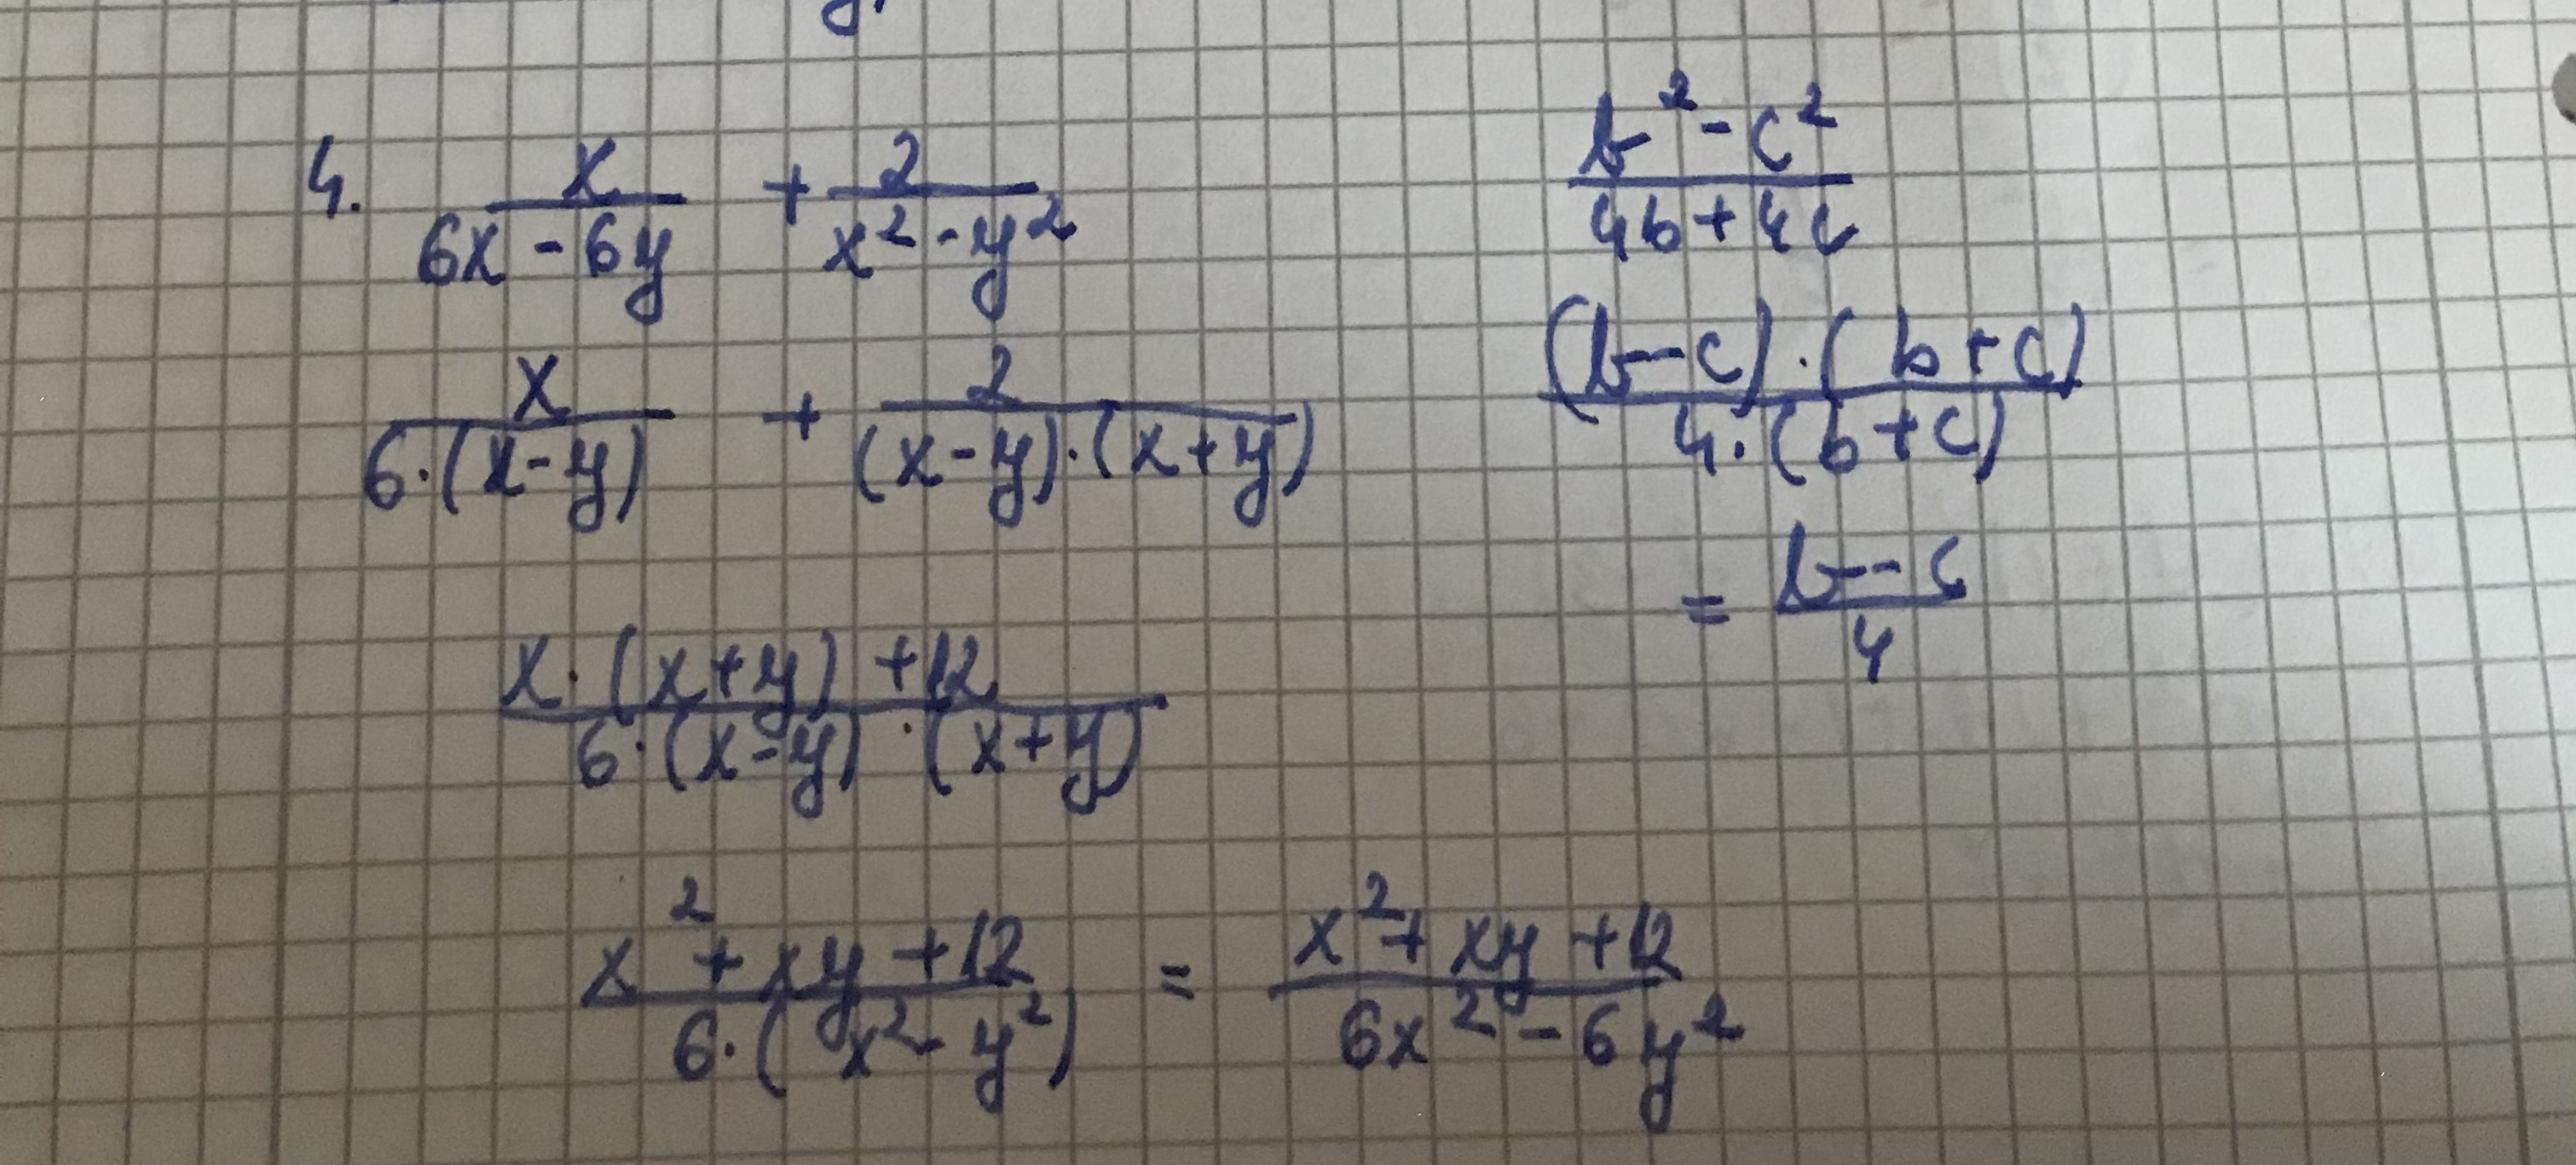 4. x/(6x - 6y) + 2/(x² - y²)
x/(6·(x-y)) + 2/((x-y)·(x+y))
(x·(x+y) +12)/(6·(x-y)·(x+y))
(x² + xy +12)/(6·(x² - y²)) = (x² + xy +12)/(6x² - 6y²)
(b² - c²)/(4b + 4c)
((b-c)·(b+c))/(4·(b+c))
= (b-c)/4